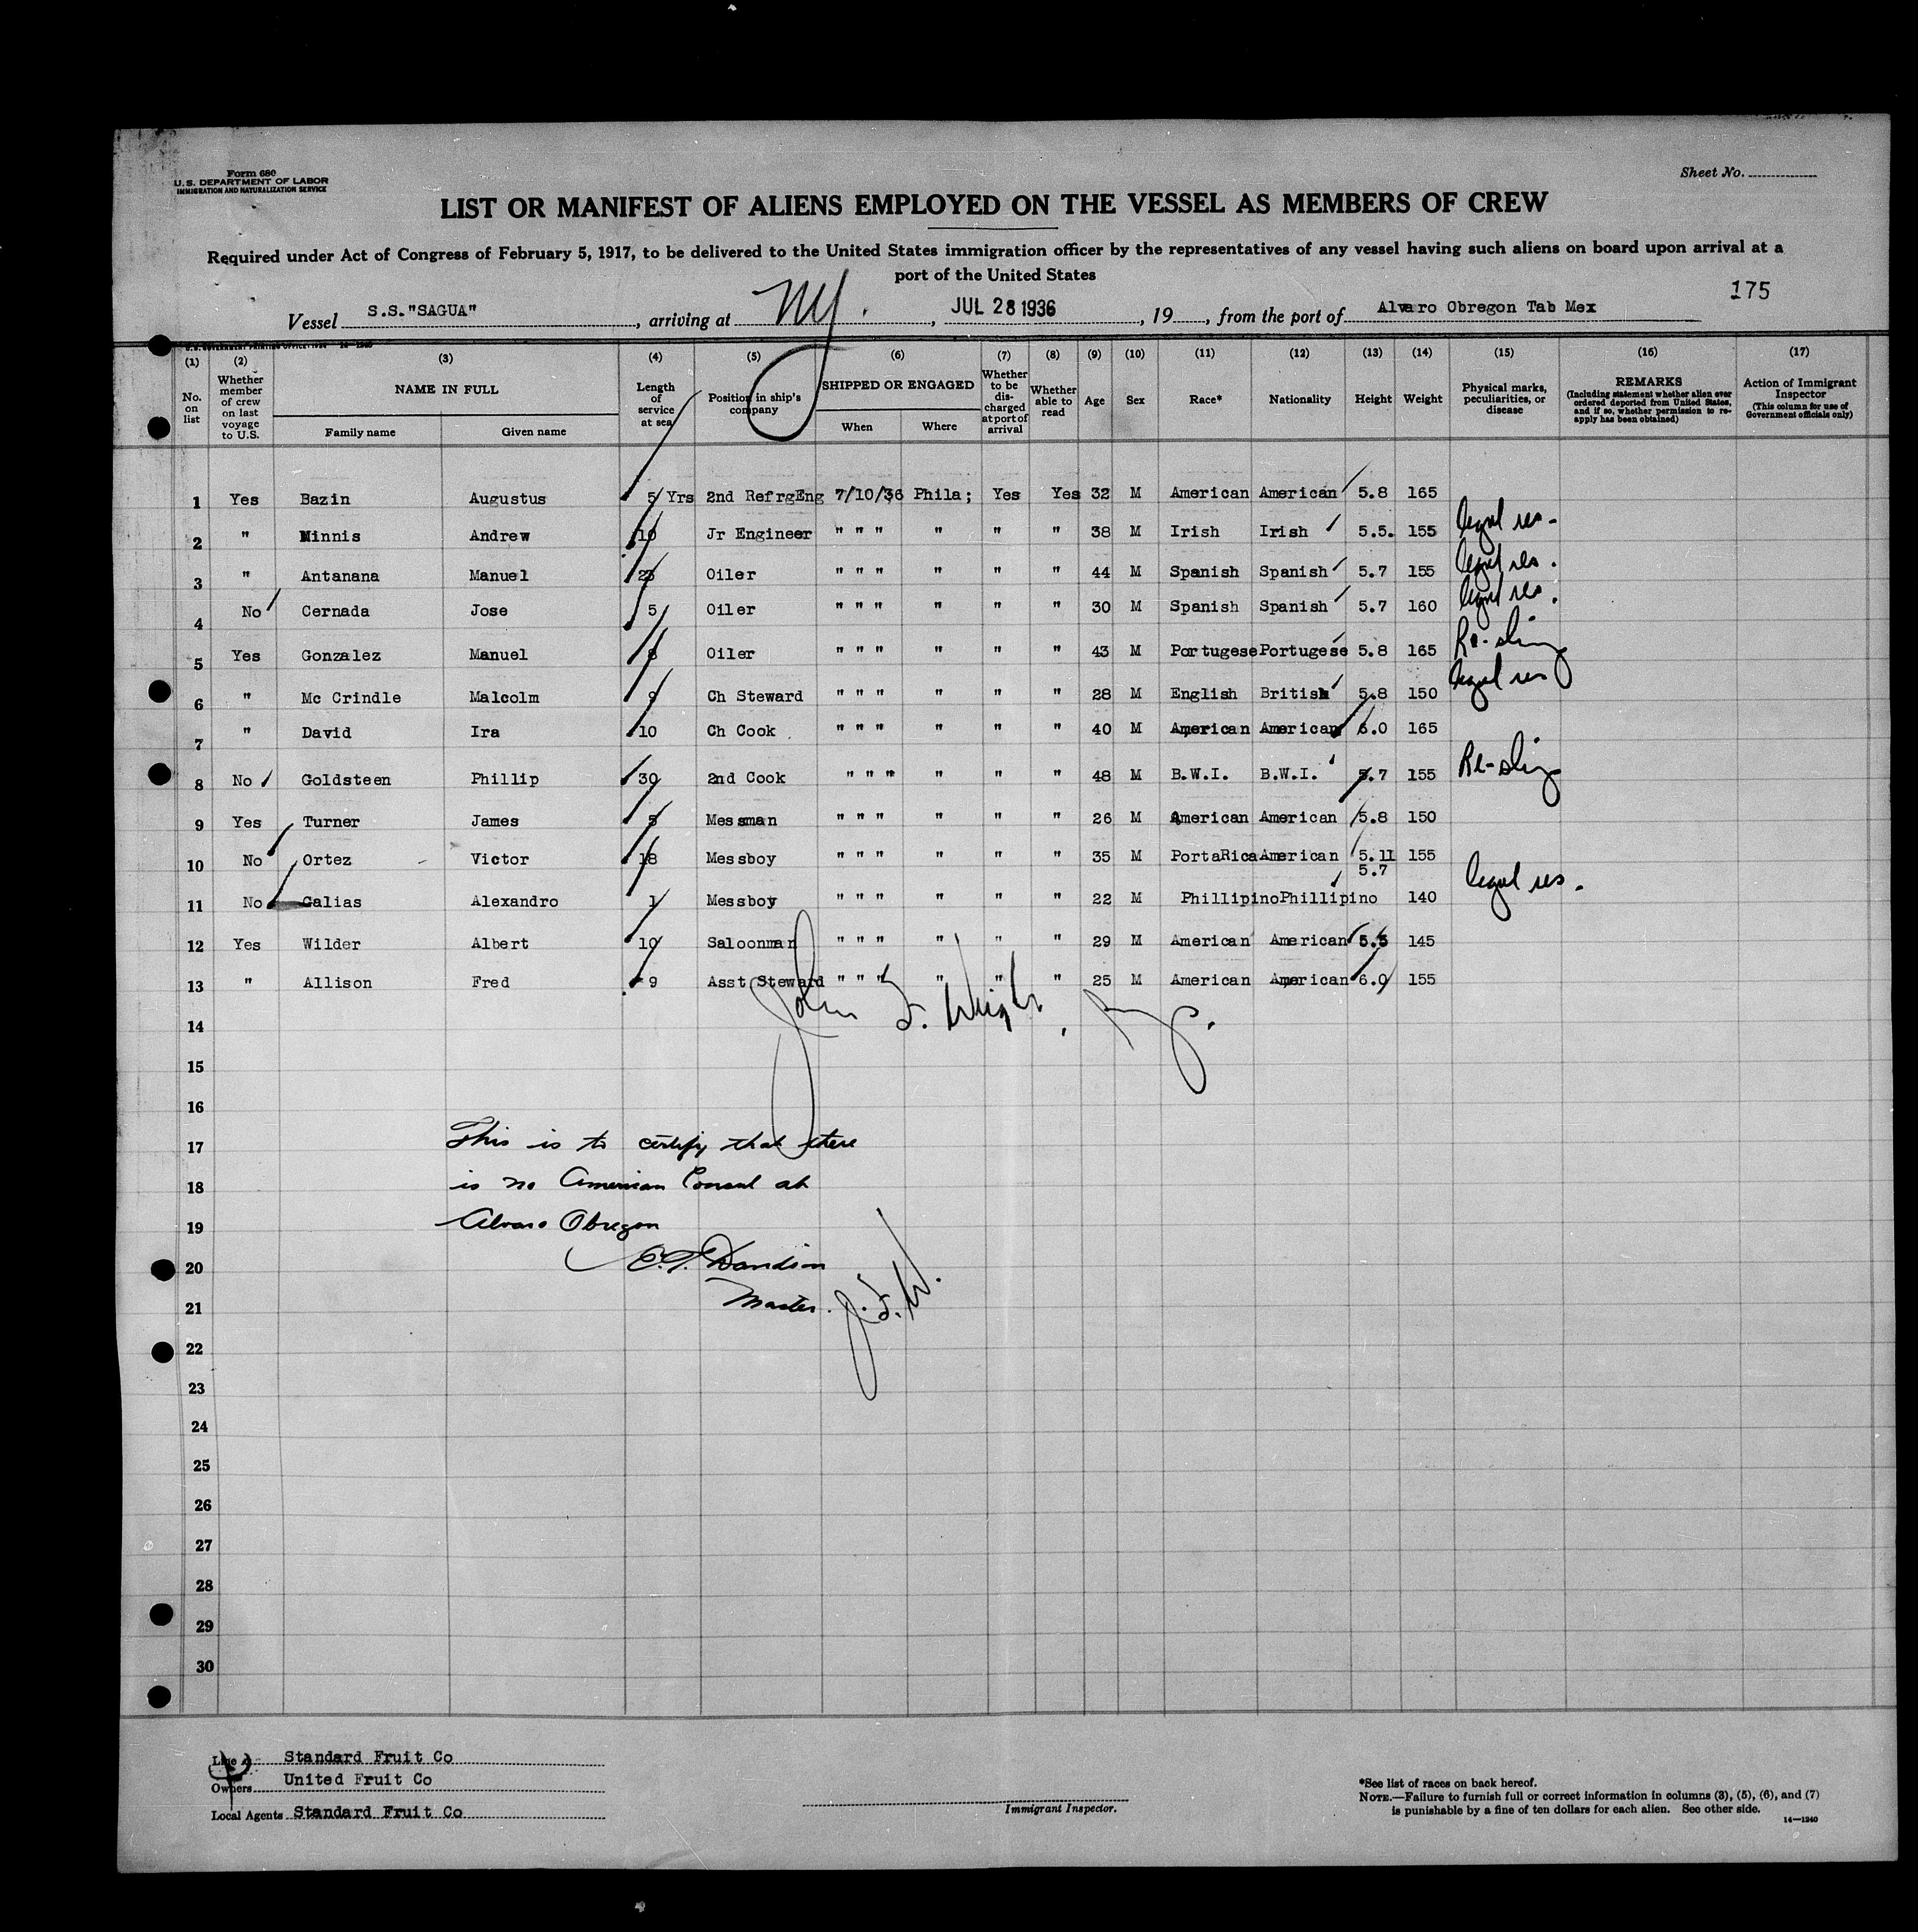 Form 680
U. S. DEPARTMENT OF LABOR
IMMIGRATION AND NATURALIZATION SERVICE
Sheet No.
LIST OR MANIFEST OF ALIENS EMPLOYED ON THE VESSEL AS MEMBERS OF CREW
Required under Act of Congress of February 5, 1917, to be delivered to the United States immigration officer by the representatives of any vessel having such aliens on board upon arrival at a
port of the United States
175
Vessel S.S."SAGUA", arriving at NY., JUL 28 1936, 19, from the port of Alvaro Obregon Tab Mex
(1) (2) (3) (4) (5) (6) (7) (8) (9) (10) (11) (12) (13) (14) (15) (16) (17)
No. on list
Whether member of crew on last voyage to U.S.
NAME IN FULL
Family name Given name
Length of service at sea
Position in ship's company
SHIPPED OR ENGAGED
When Where
Whether to be discharged at port of arrival
Whether able to read
Age
Sex
Race*
Nationality
Height
Weight
Physical marks, peculiarities, or disease
REMARKS
(Including statement whether alien ever ordered deported from United States, and if so, whether permission to reapply has been obtained)
Action of Immigrant Inspector
(This column for use of Government officials only)
1 Yes Bazin Augustus 5 Yrs 2nd RefrgEng 7/10/36 Phila; Yes Yes 32 M American American 5.8 165
2 " Minnis Andrew 10 Jr Engineer " " " " " " 38 M Irish Irish 5.5. 155 legal res-
3 " Antanana Manuel 25 Oiler " " " " " " 44 M Spanish Spanish 5.7 155 legal res.
4 No Cernada Jose 5 Oiler " " " " " " 30 M Spanish Spanish 5.7 160 legal res.
5 Yes Gonzalez Manuel 8 Oiler " " " " " " 43 M Portugese Portugese 5.8 165 Re-sling
6 " Mc Crindle Malcolm 9 Ch Steward " " " " " " 28 M English British 5.8 150 legal res
7 " David Ira 10 Ch Cook " " " " " " 40 M American American 6.0 165
8 No Goldsteen Phillip 30 2nd Cook " " " " " " 48 M B.W.I. B.W.I. 5.7 155 Re-sling
9 Yes Turner James 5 Messman " " " " " " 26 M American American 5.8 150
10 No Ortez Victor 18 Messboy " " " " " " 35 M PortaRica American 5.11 155
5.7
11 No Galias Alexandro 1 Messboy " " " " " " 22 M Phillipino Phillipino 140 legal res.
12 Yes Wilder Albert 10 Saloonman " " " " " " 29 M American American 5.5 145
13 " Allison Fred 9 Asst Steward " " " " " " 25 M American American 6.0 155
John F. Wright,
14
15
16
17 This is to certify that there
18 is no American Consul at
19 Alvaro Obregon
20
21 Master. J.F.W.
22
23
24
25
26
27
28
29
30
Line Standard Fruit Co
Owners United Fruit Co
Local Agents Standard Fruit Co
Immigrant Inspector.
*See list of races on back hereof.
NOTE.—Failure to furnish full or correct information in columns (3), (5), (6), and (7)
is punishable by a fine of ten dollars for each alien. See other side.
14—1240